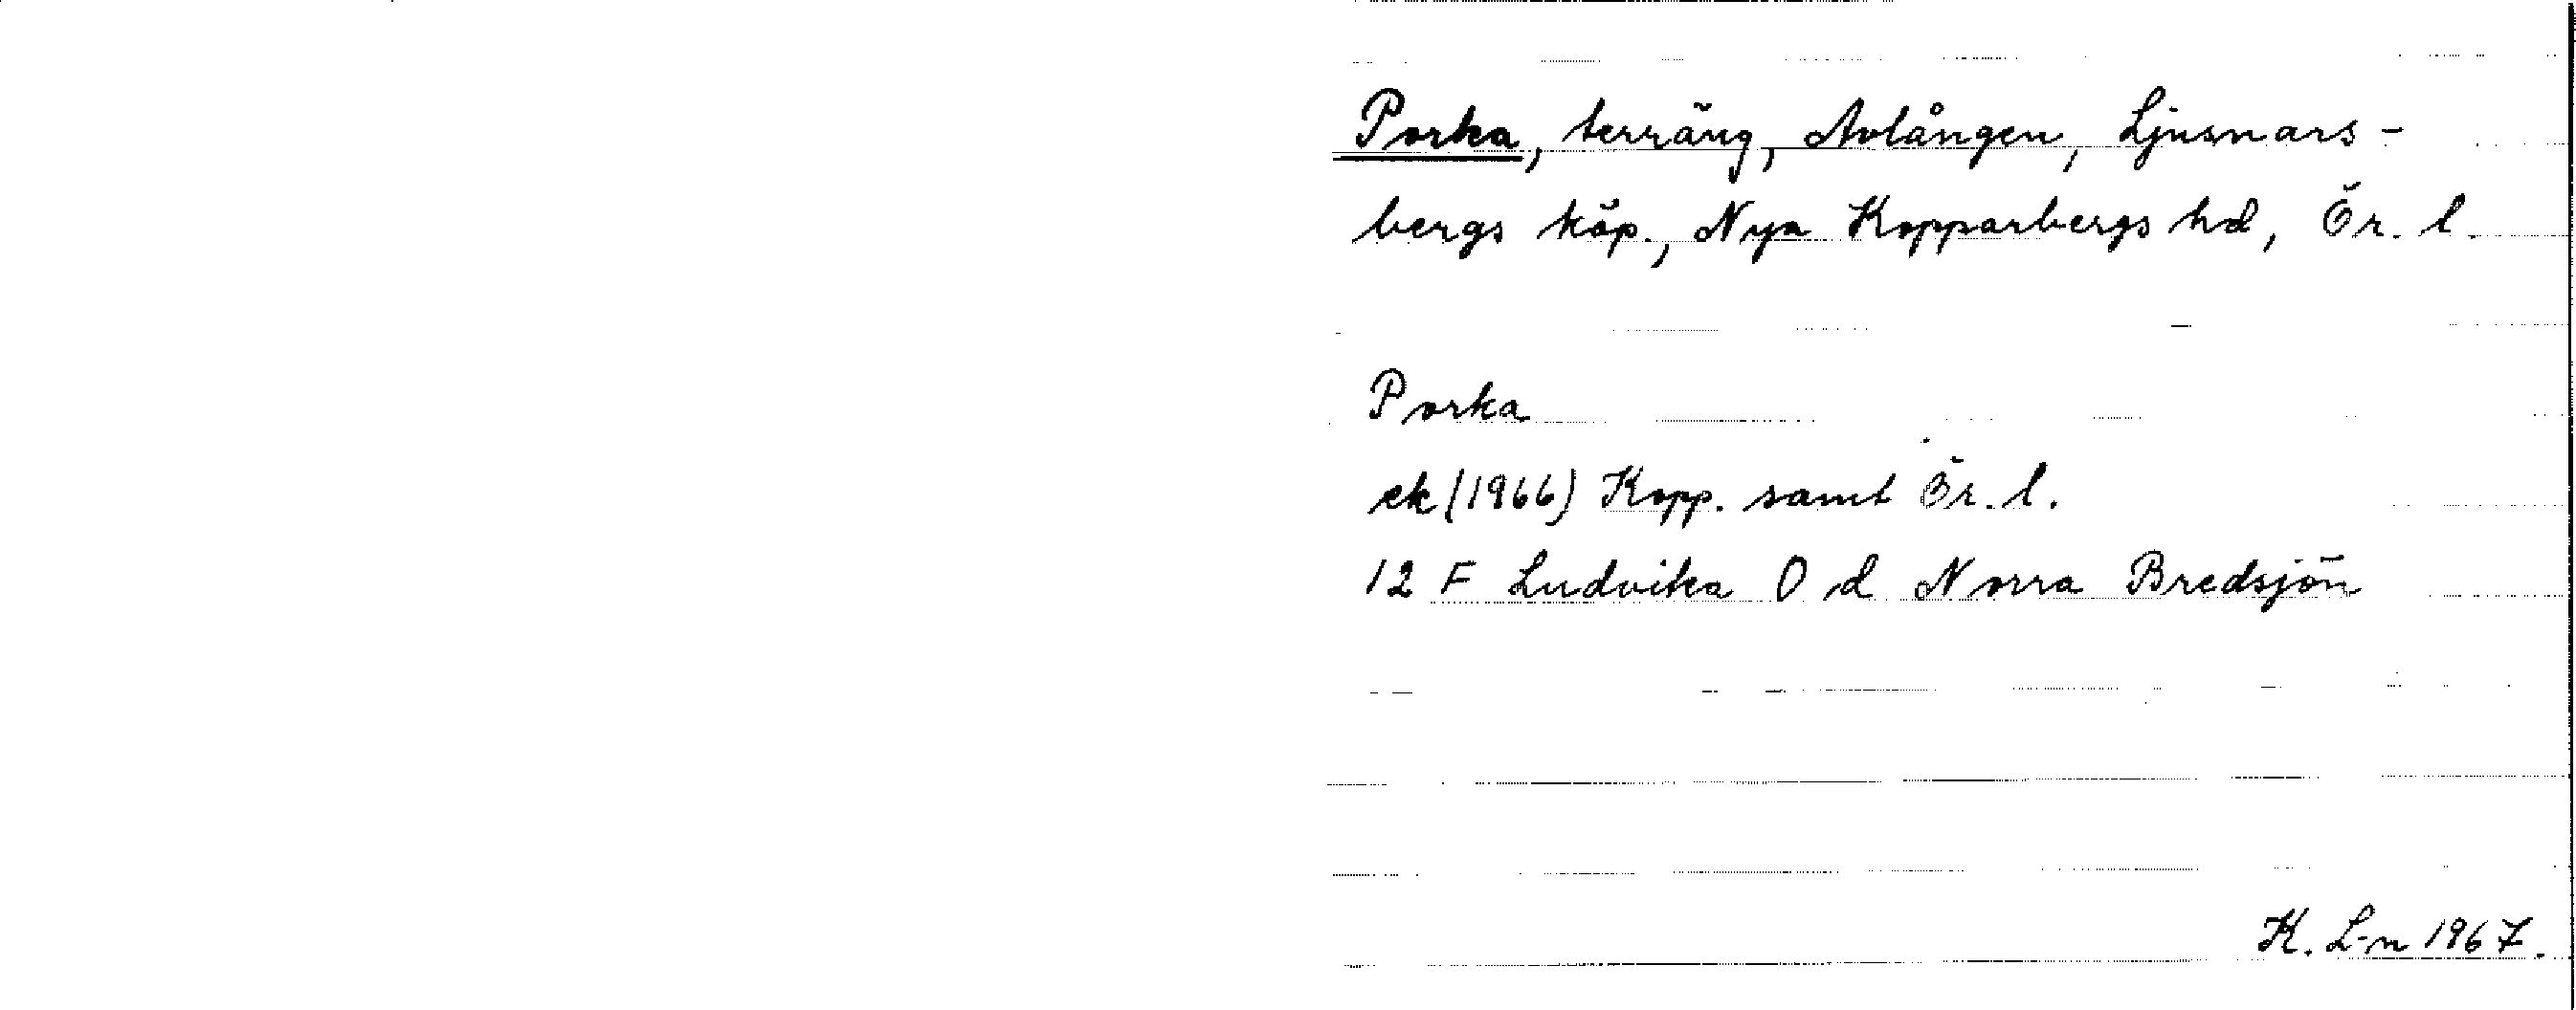 Porka, terräng, Avlången, Ljusnars-
bergs köp., Nya Kopparbergs hd, Ör. l.
Porka
ek (1966) Kopp. samt Ör. l.
12 F Ludvika 0 d Norra Bredsjön
K. L-n 1967.